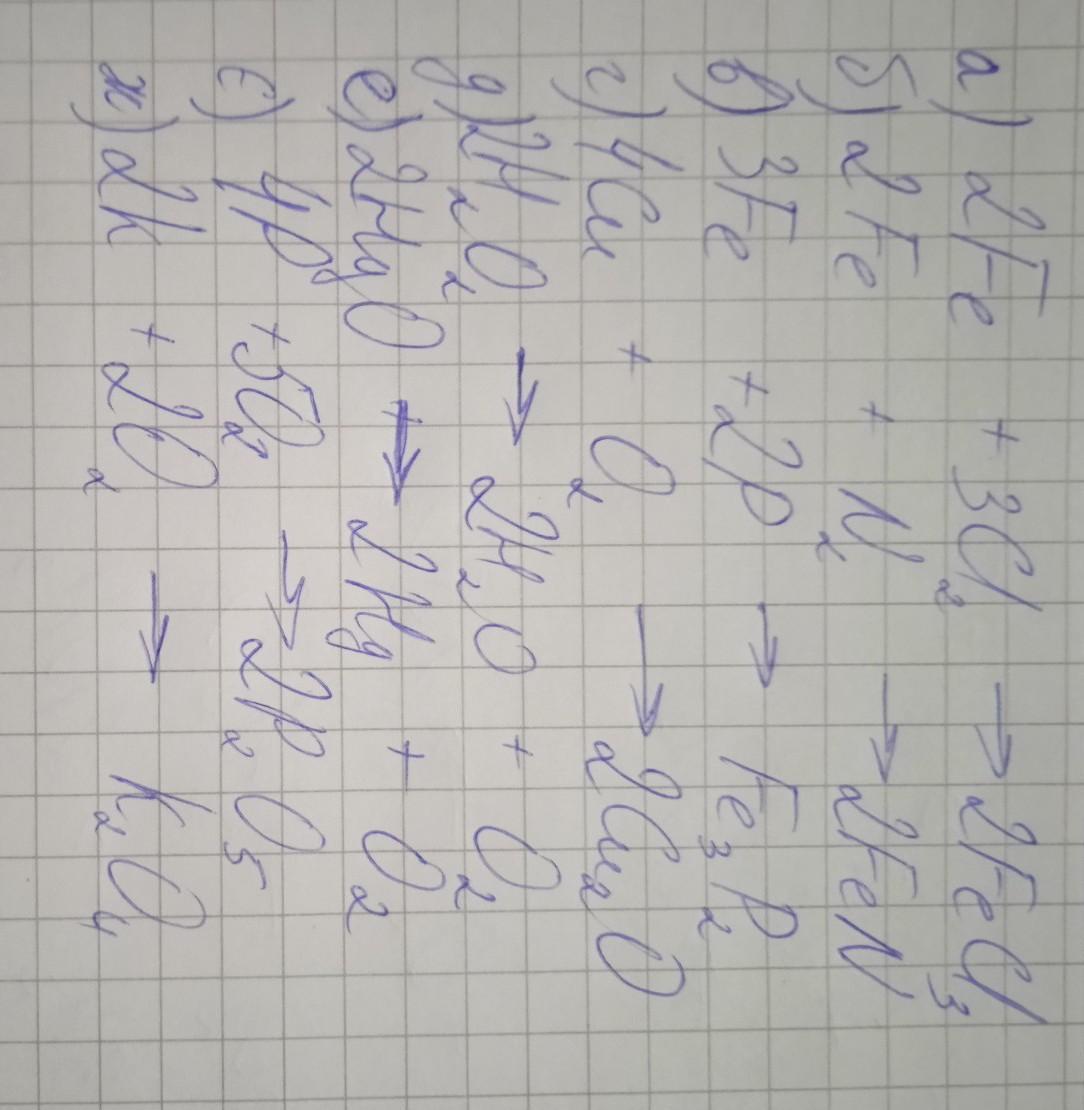 а) 2Fe + 3Cl₂ → 2FeCl₃
б) 2Fe + N₂ → 2FeN
в) 3Fe + 2P → Fe₃P₂
г) 4Cu + O₂ → 2Cu₂O
д) 2H₂O₂ → 2H₂O + O₂
е) 2HgO → 2Hg + O₂
є) 4P + 5O₂ → 2P₂O₅
ж) 2K + 2O₂ → K₂O₄